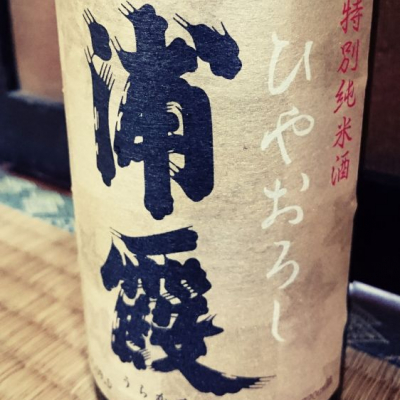 特別純米酒
ひやおろし
浦霞
うらか